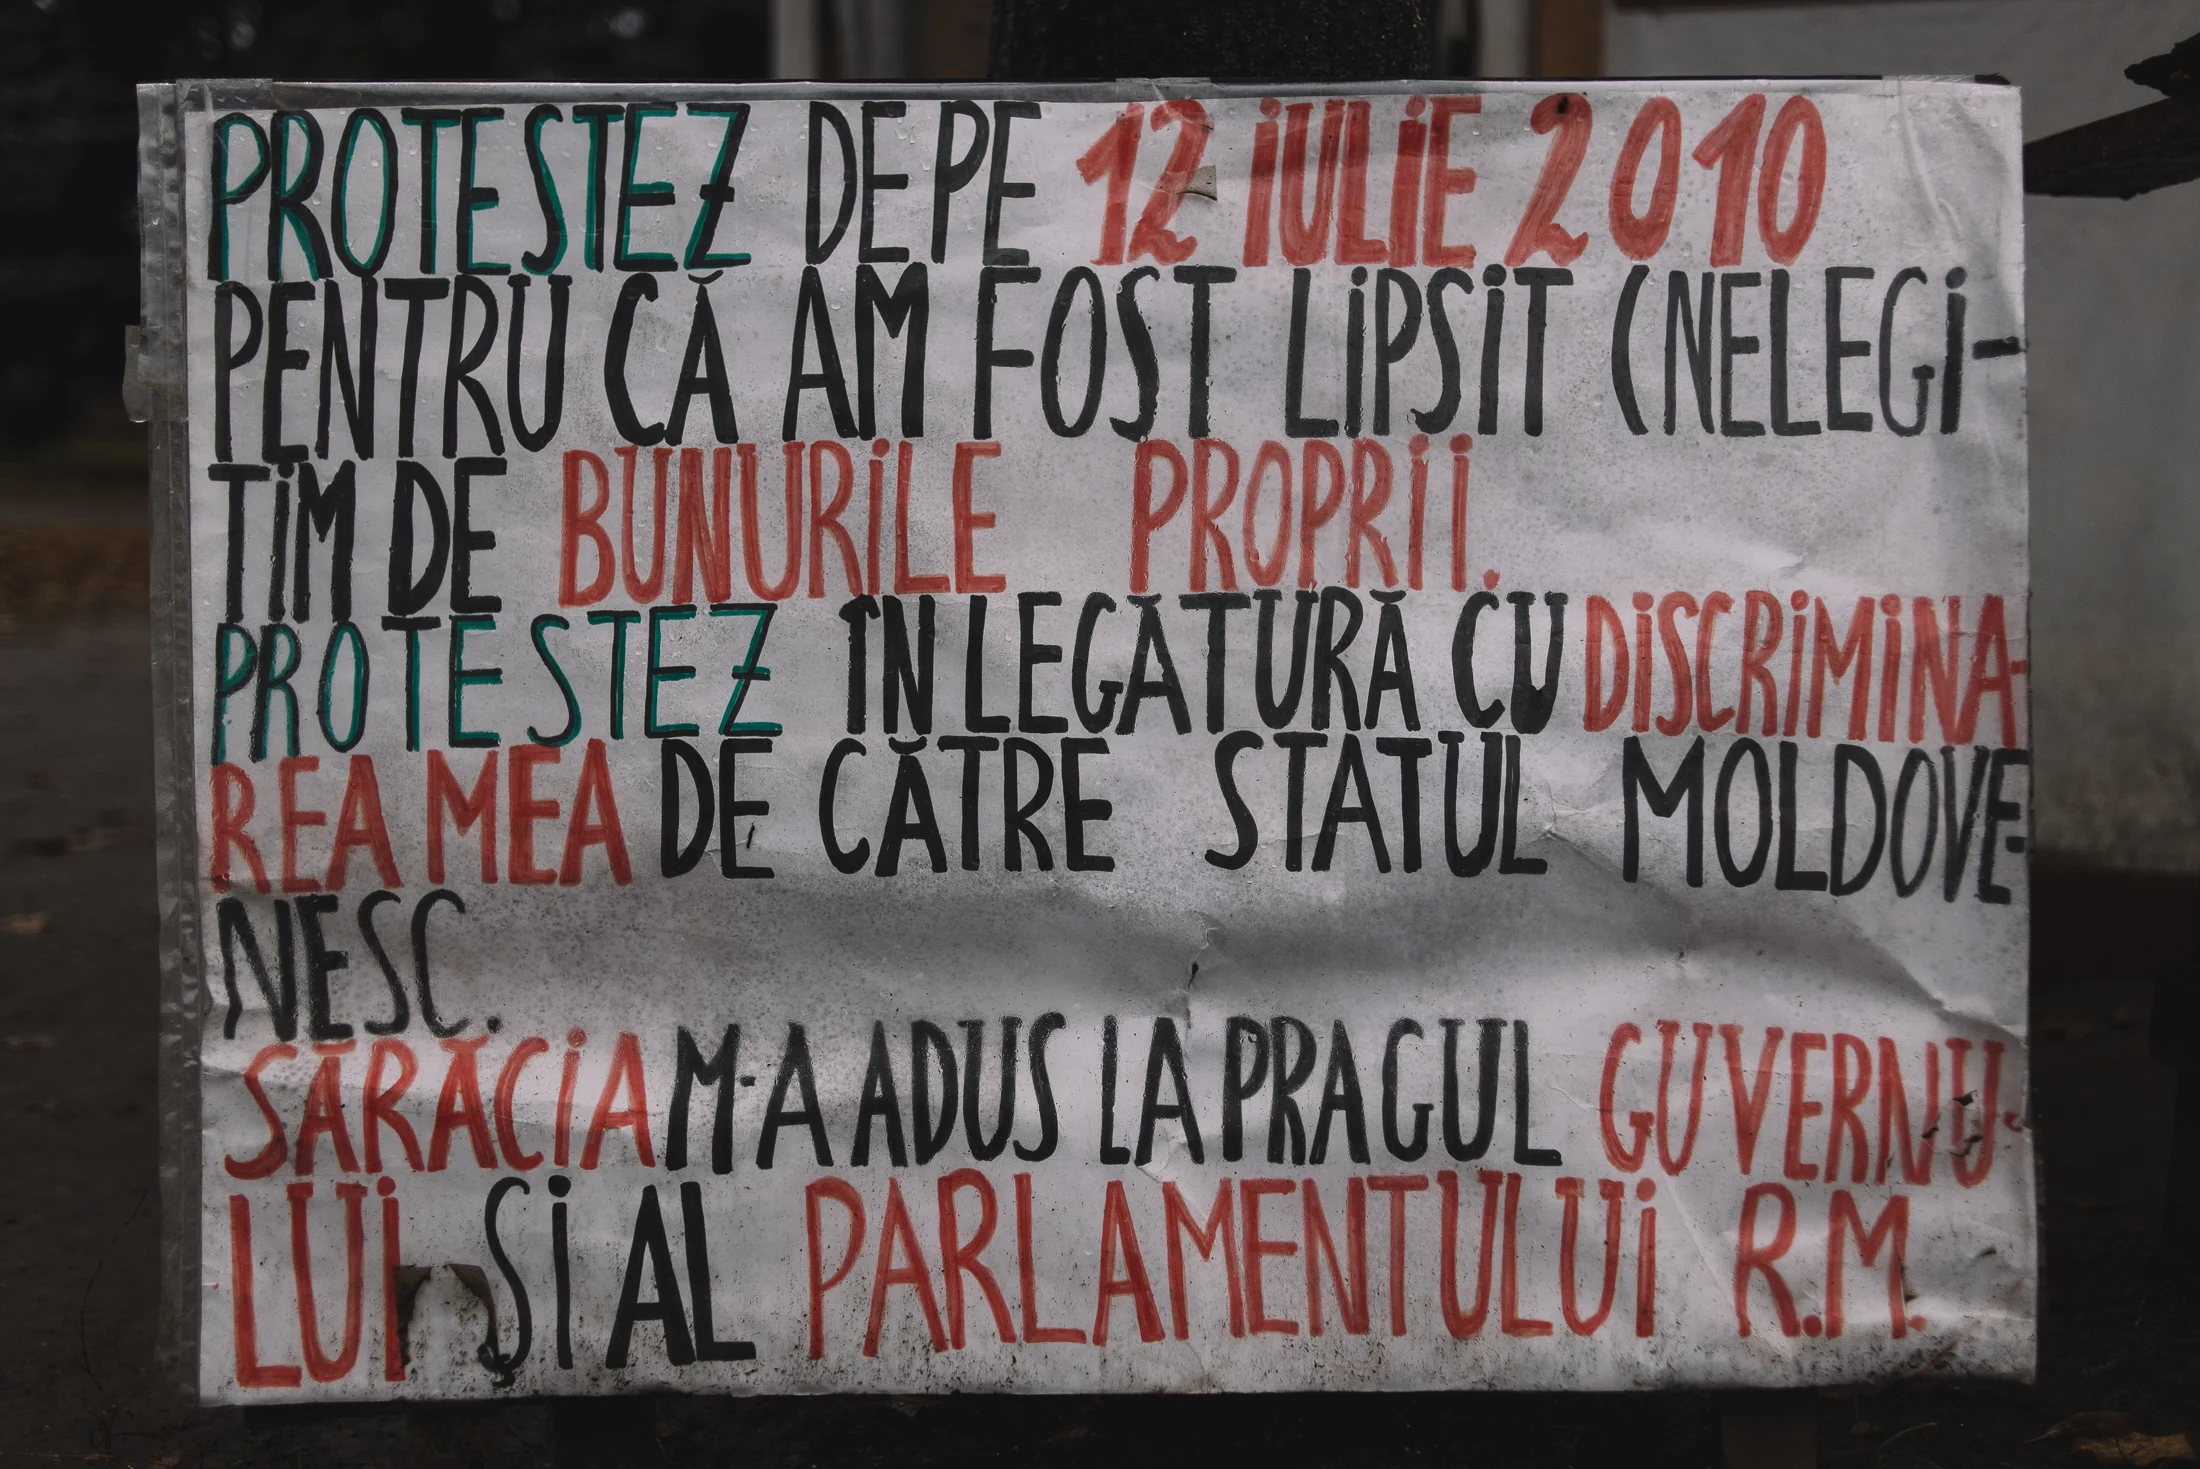 PROTESTEZ DE PE 12 iULiE 2010
PENTRU CĂ AM FOST LiPSiT (NELEGi-
TiM DE BUNURiLE PROPRii.
PROTESTEZ ÎN LEGĂTURĂ CU DiSCRiMiNA-
REA MEA DE CĂTRE STATUL MOLDOVE-
NESC.
SĂRĂCiA M-A ADUS LA PRAGUL GUVERNU-
LUi ȘI AL PARLAMENTULUi R.M.